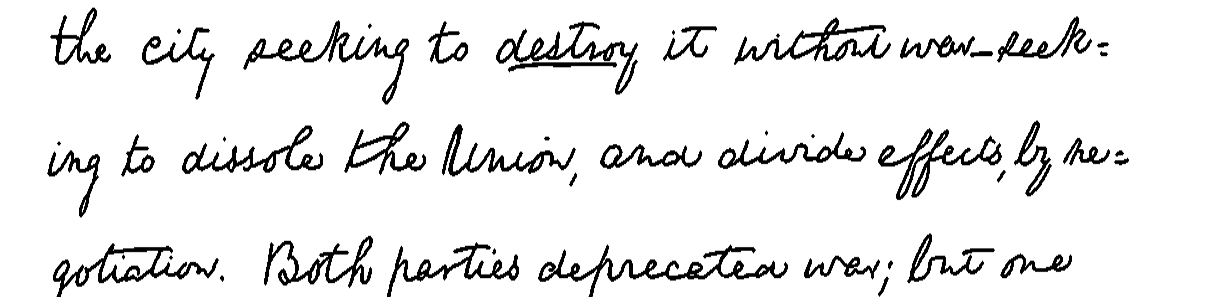 the city seeking to destroy it without war—seek=
ing to dissole the Union, and divide effects, by ne=
gotiation. Both parties deprecated war; but one